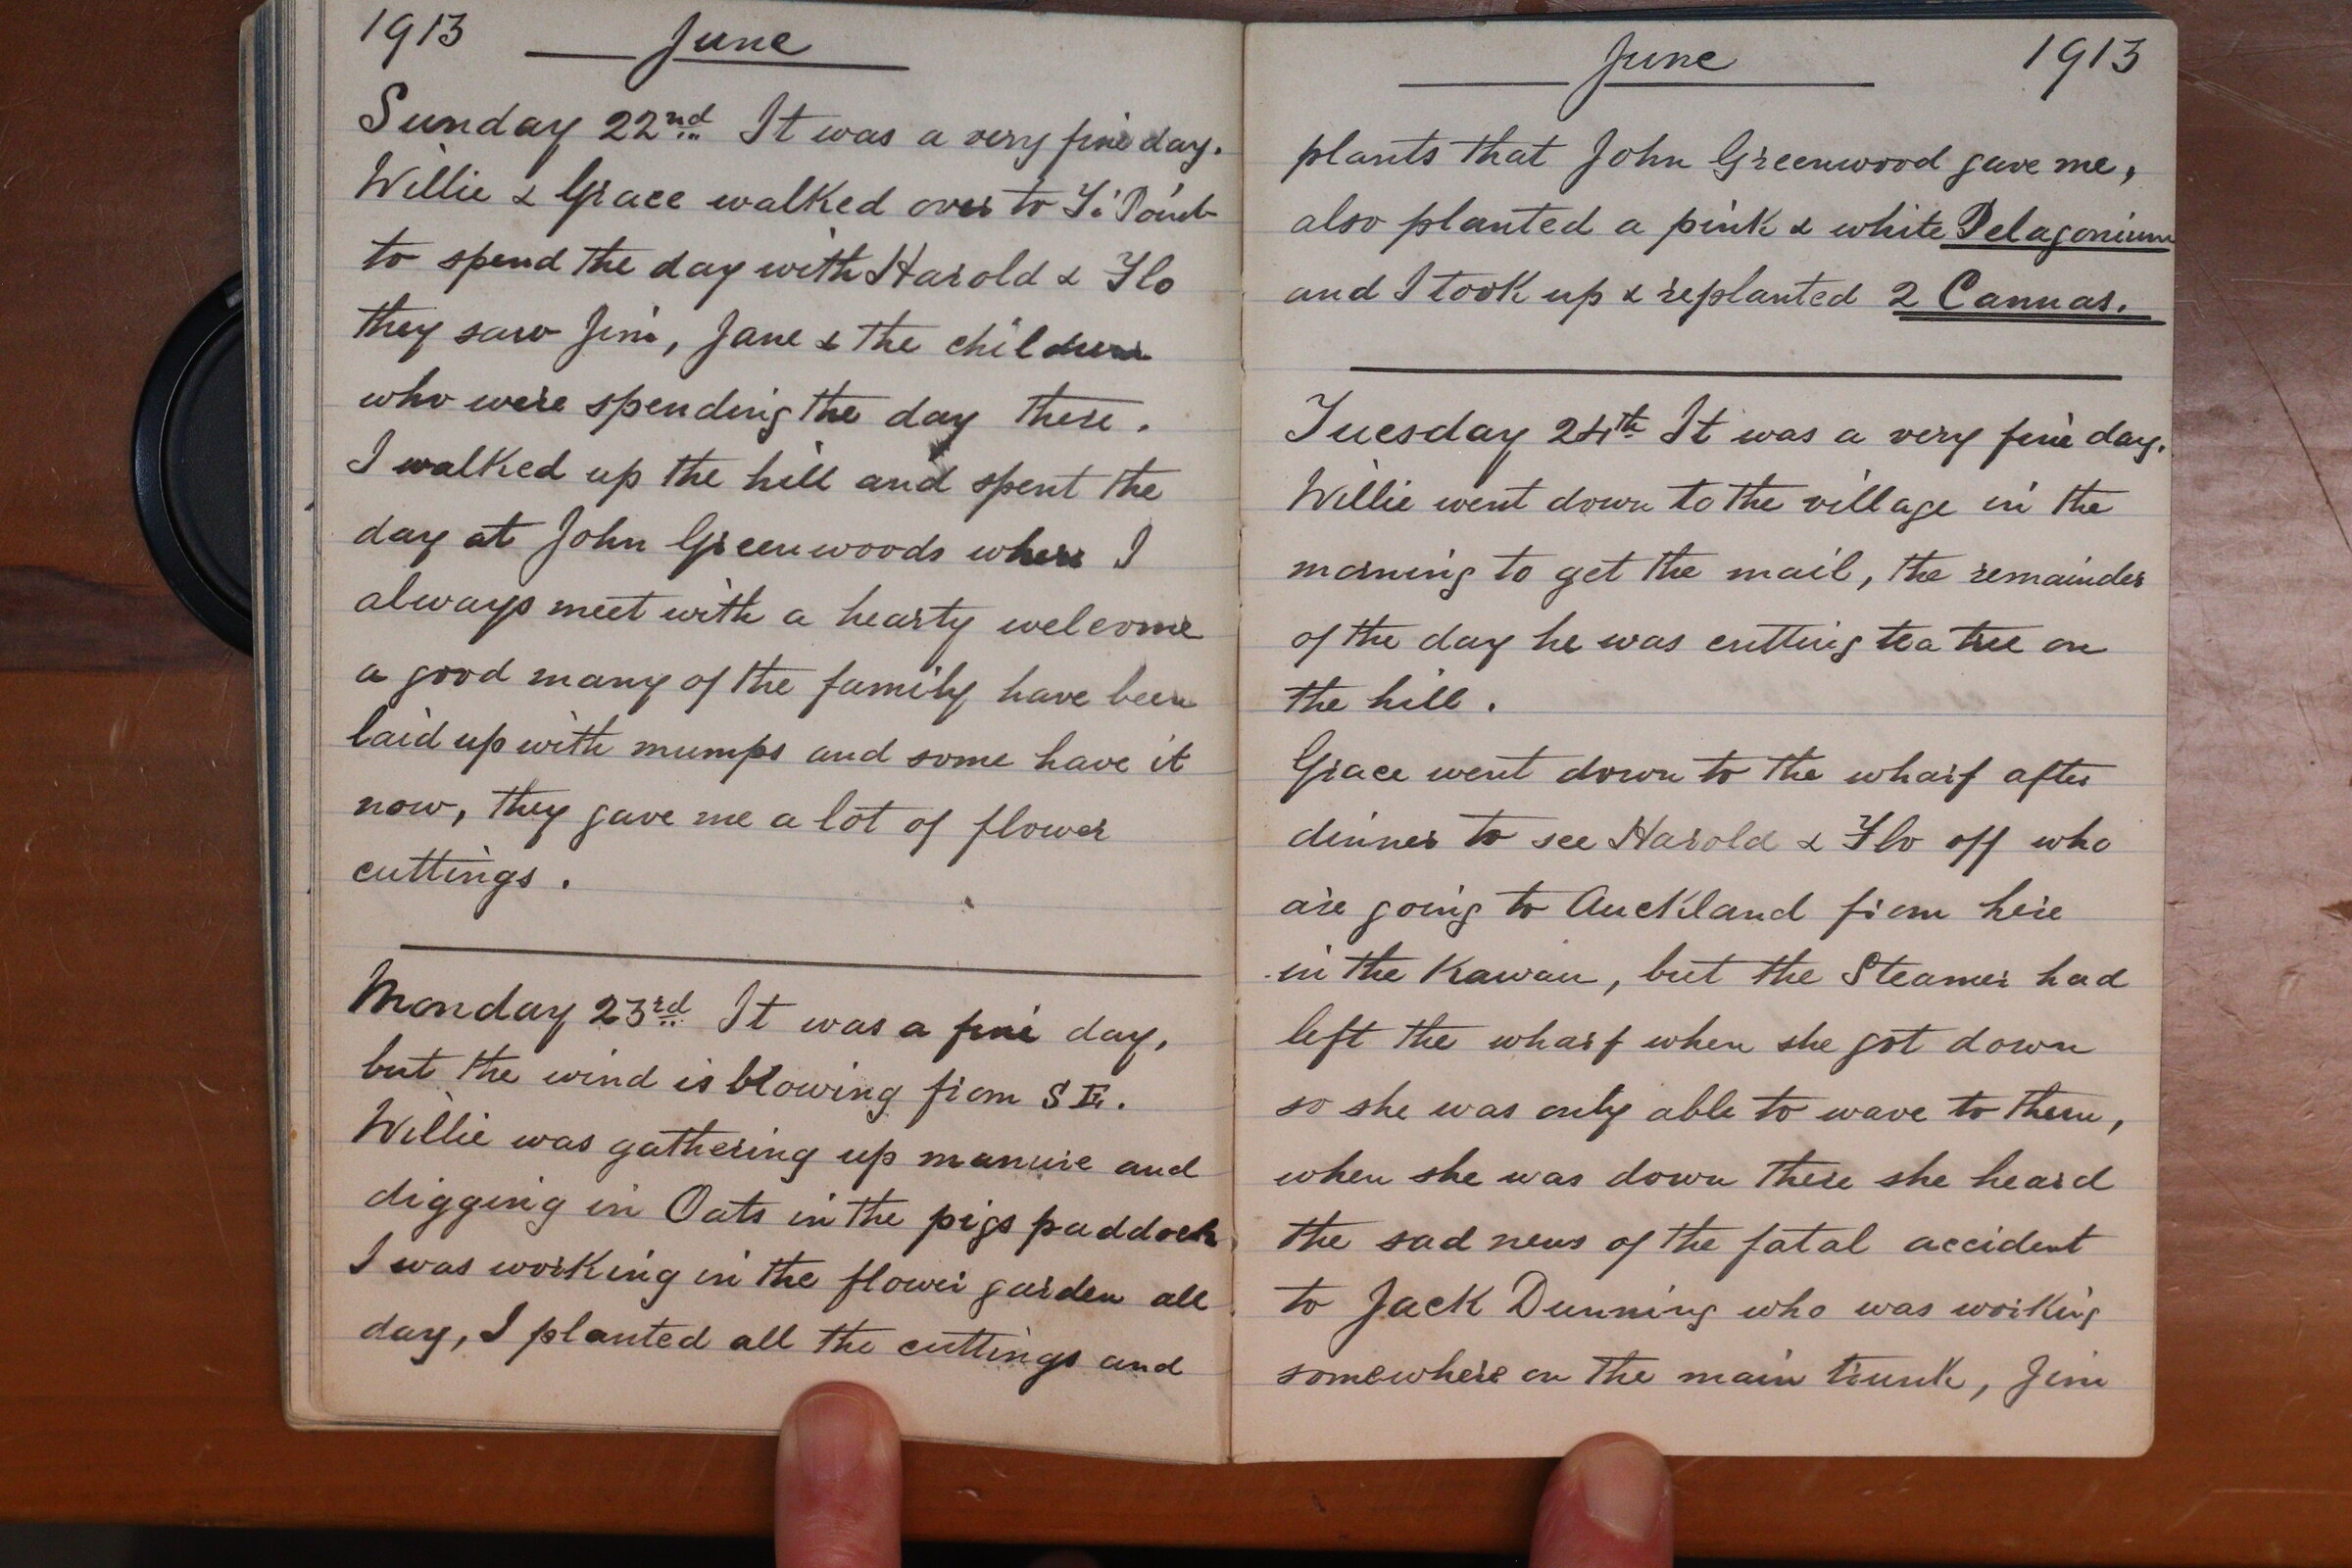 1913 June
Sunday 22nd It was a very fine day.
Willie & Grace walked over to Ti Point
to spend the day with Harold & Flo
they saw Jim, Jane & the children
who were spending the day there.
I walked up the hill and spent the
day at John Greenwoods where I
always meet with a hearty welcome
a good many of the family have been
laid up with mumps and some have it
now, they gave me a lot of flower
cuttings.
Monday 23rd It was a fine day,
but the wind is blowing from S E.
Willie was gathering up manure and
digging in Oats in the pigs paddock
I was working in the flower garden all
day, I planted all the cuttings and
June 1913
plants that John Greenwood gave me,
also planted a pink & white Pelagonium
and I took up & replanted 2 Cannas.
Tuesday 24th It was a very fine day.
Willie went down to the village in the
morning to get the mail, the remainder
of the day he was cutting tea tree on
the hill.
Grace went down to the wharf after
dinner to see Harold & Flo off who
are going to Auckland from here
in the Kawau, but the Steamer had
left the wharf when she got down
so she was only able to wave to them,
when she was down there she heard
the sad news of the fatal accident
to Jack Dunning who was working
somewhere on the main trunk, Jim